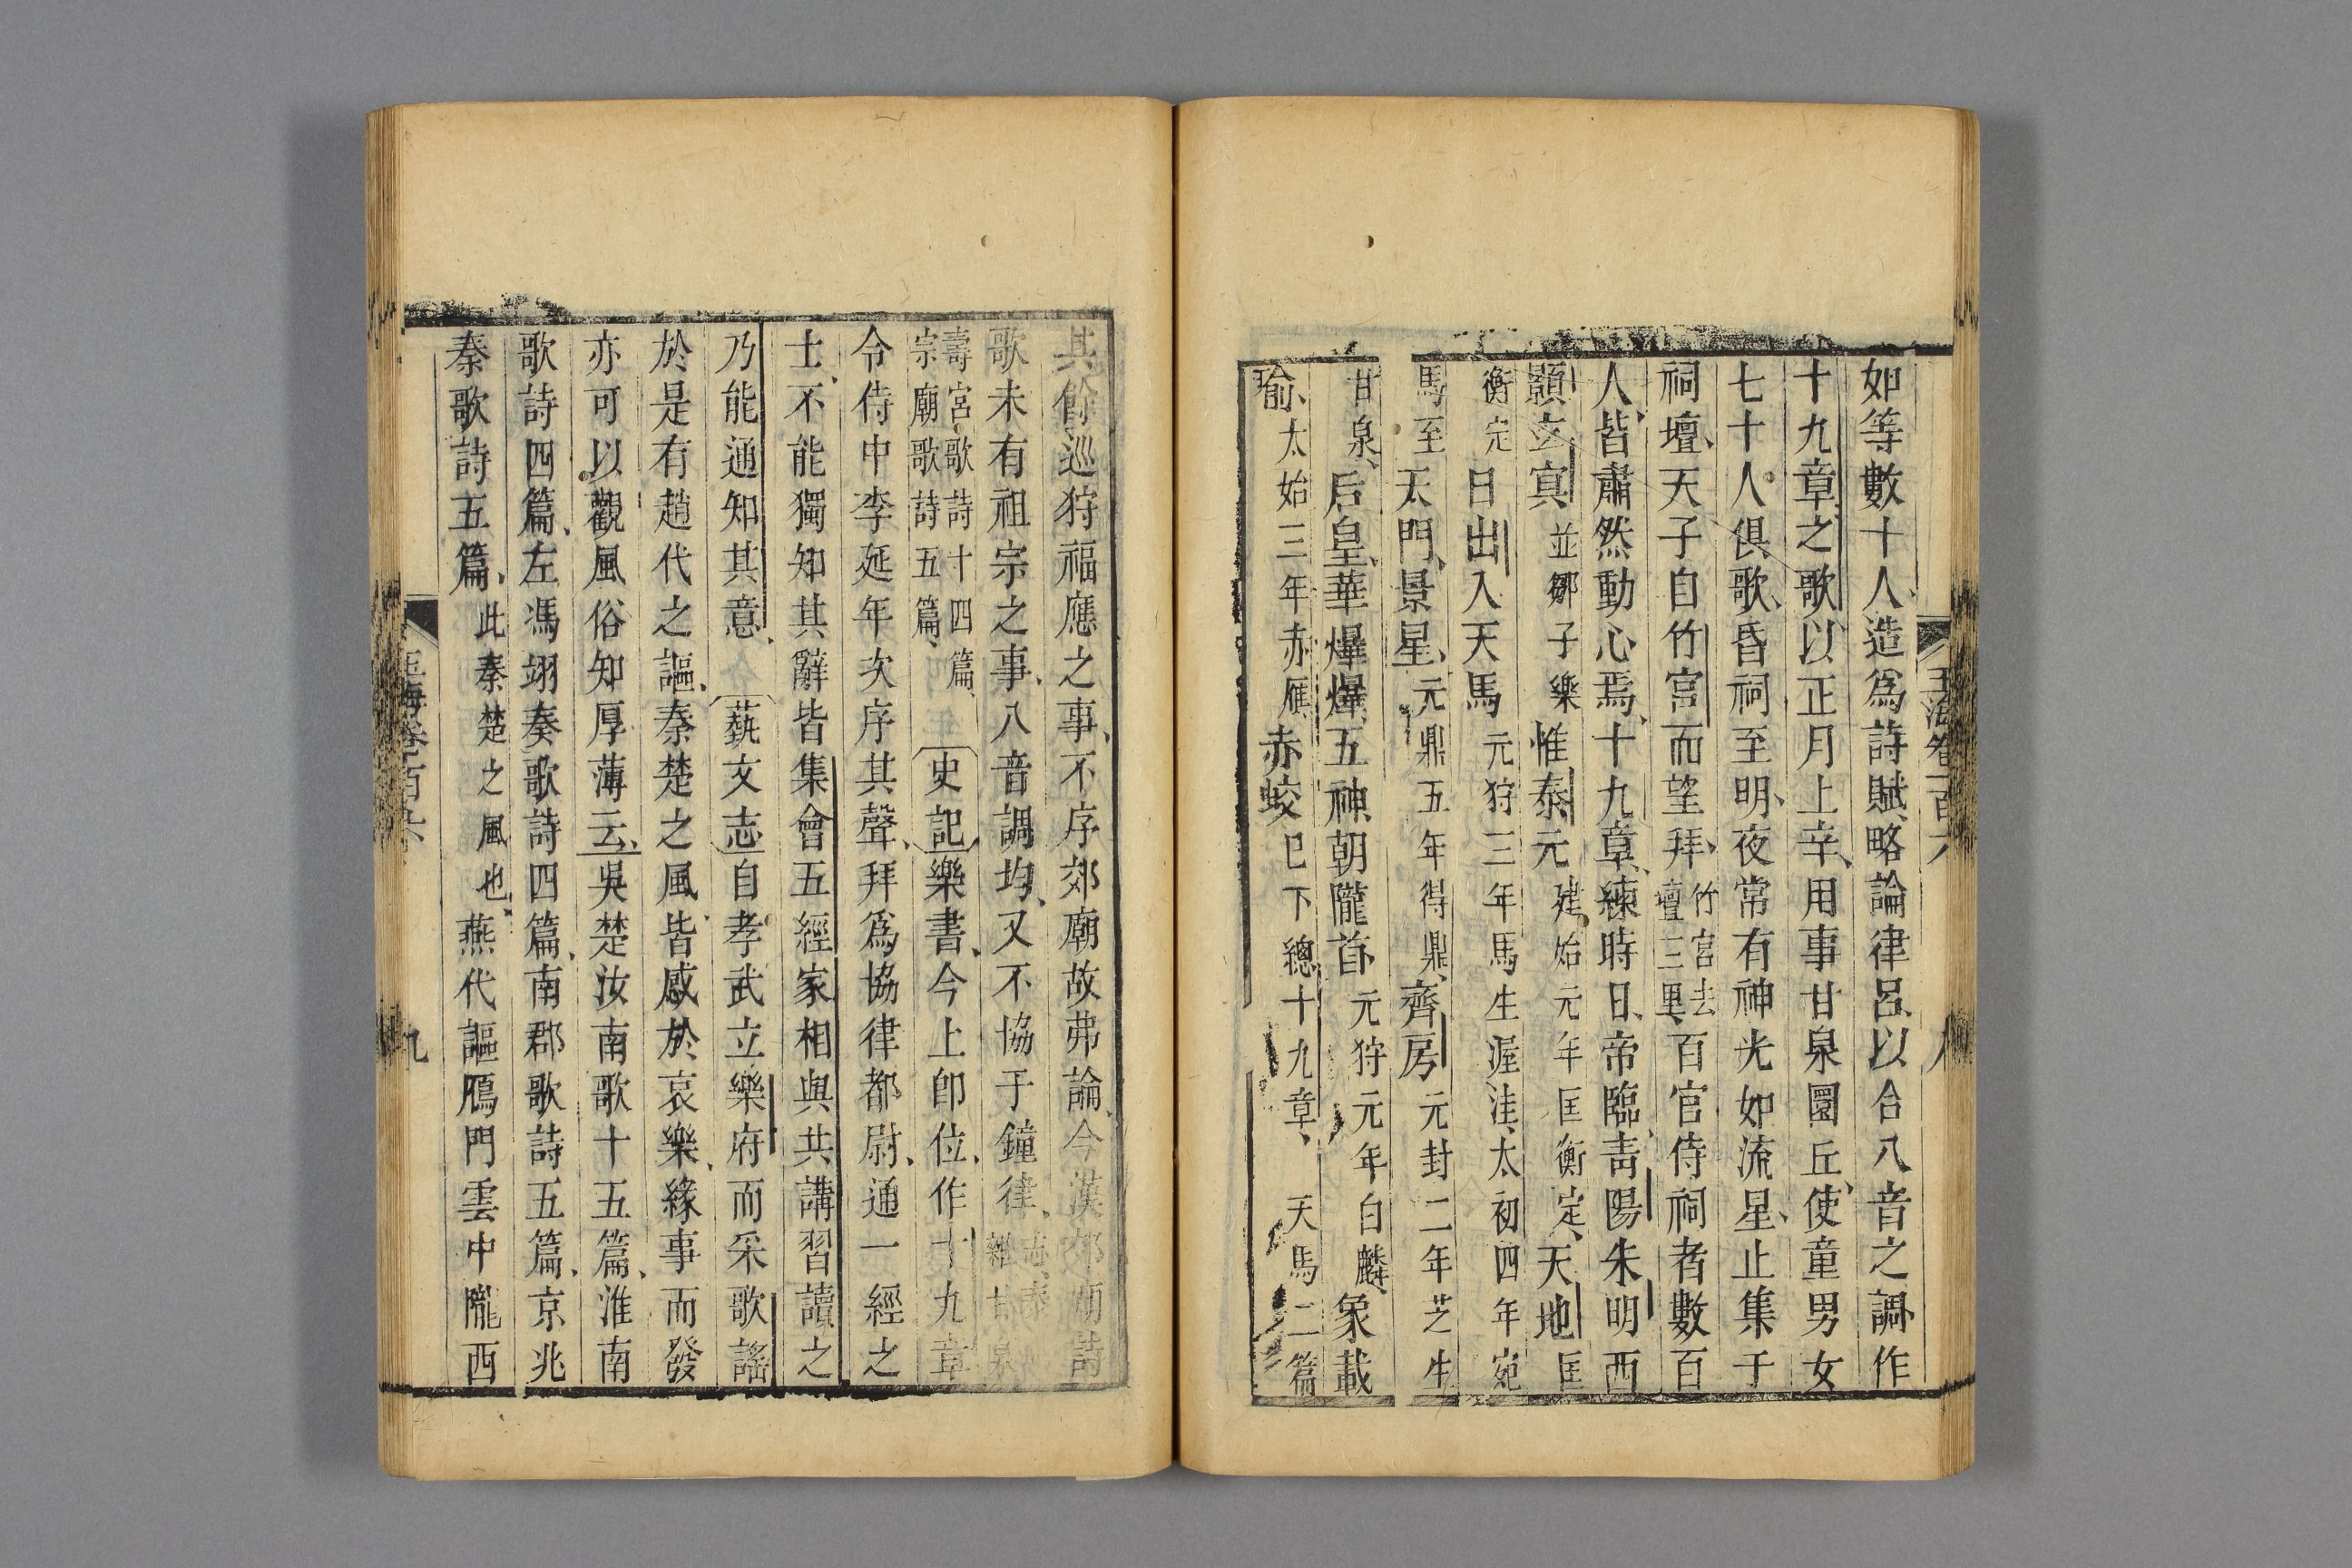 玉海卷一百六
如等數十人造爲詩賦略論律呂以合八音之調作
十九章之歌以正月上辛用事甘泉圜丘使童男女
七十人俱歌昏祠至明夜常有神光如流星止集于
祠壇天子自竹宮而望拜竹宮去壇三里百官侍祠者數百
人皆肅然動心焉十九章練時日帝臨靑陽朱明西
顥玄冥並鄒子樂惟泰元建始元年匡衡定天地匡
衡定日出入天馬元狩三年馬生渥洼太初四年宛
馬至天門景星元鼎五年得鼎齊房元封二年芝生
甘泉后皇華爗爗五神朝隴首元狩元年白麟象載
瑜太始三年赤雁赤蛟已下總十九章天馬二篇
其餘巡狩福應之事不序郊廟故弗論今漢郊廟詩
歌未有祖宗之事八音調均又不協于鐘律
壽宮歌詩十四篇宗廟歌詩五篇史記樂書今上卽位作十九章
令侍中李延年次序其聲拜爲協律都尉通一經之
士不能獨知其辭皆集會五經家相與共講習讀之
乃能通知其意藝文志自孝武立樂府而采歌謠
於是有趙代之謳秦楚之風皆感於哀樂緣事而發
亦可以觀風俗知厚薄云吳楚汝南歌十五篇淮南
歌詩四篇左馮翊秦歌詩四篇南郡歌詩五篇京兆
秦歌詩五篇此秦楚之風也燕代謳鴈門雲中隴西
九